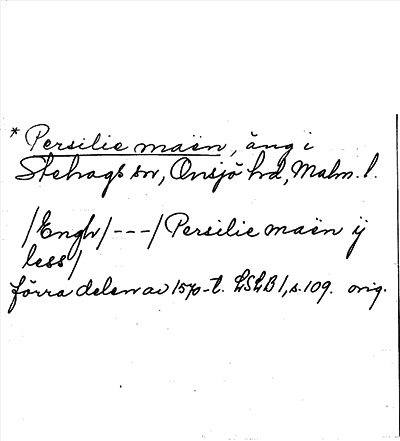 * Persilie maën, äng i
Stehags sn, Onsjö hd, Malm. l.
/Engh/ --- / Persilie maën ÿ
less/
förra delen av 1570-t. LSLB 1, s. 109. orig.